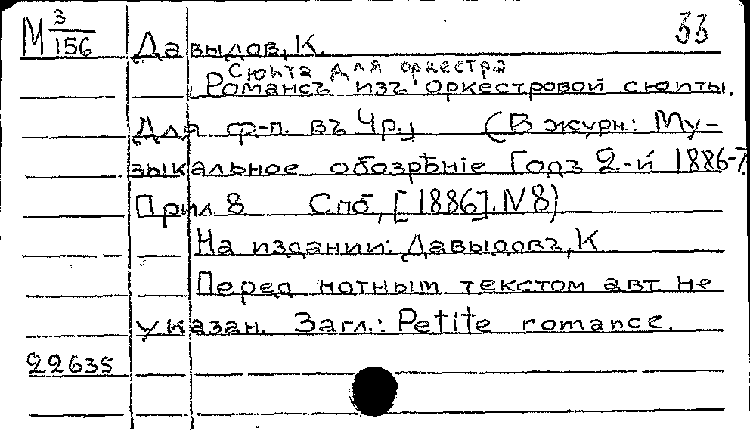 М 3/156 Давыдов, К. 33
Сюита для оркестра
Романсъ изъ оркестровой сюиты.
Для ф-п. въ 4 р. (В журн: Му-
зыкальное обозрѣніе Годъ 2-й 1886-7
Прил 8 Спб, [1886]. N 8)
На издании: Давыдовъ, К
Перед нотным текстом авт не
указан. Загл.: Petite romance.
22635